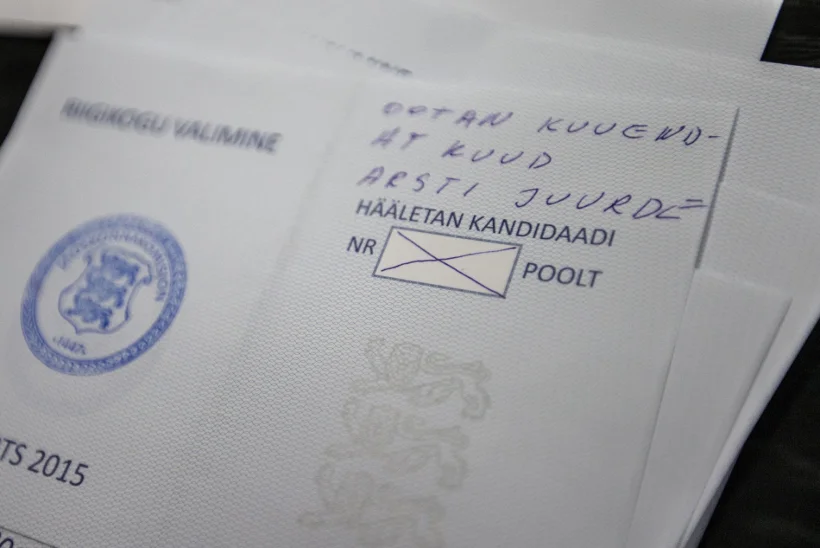 RIIGIKOGU VALIMINE
TS 2015
OOTAN KUUEND-
AT KUUD
ARSTI JUURDE
HÄÄLETAN KANDIDAADI
NR
POOLT